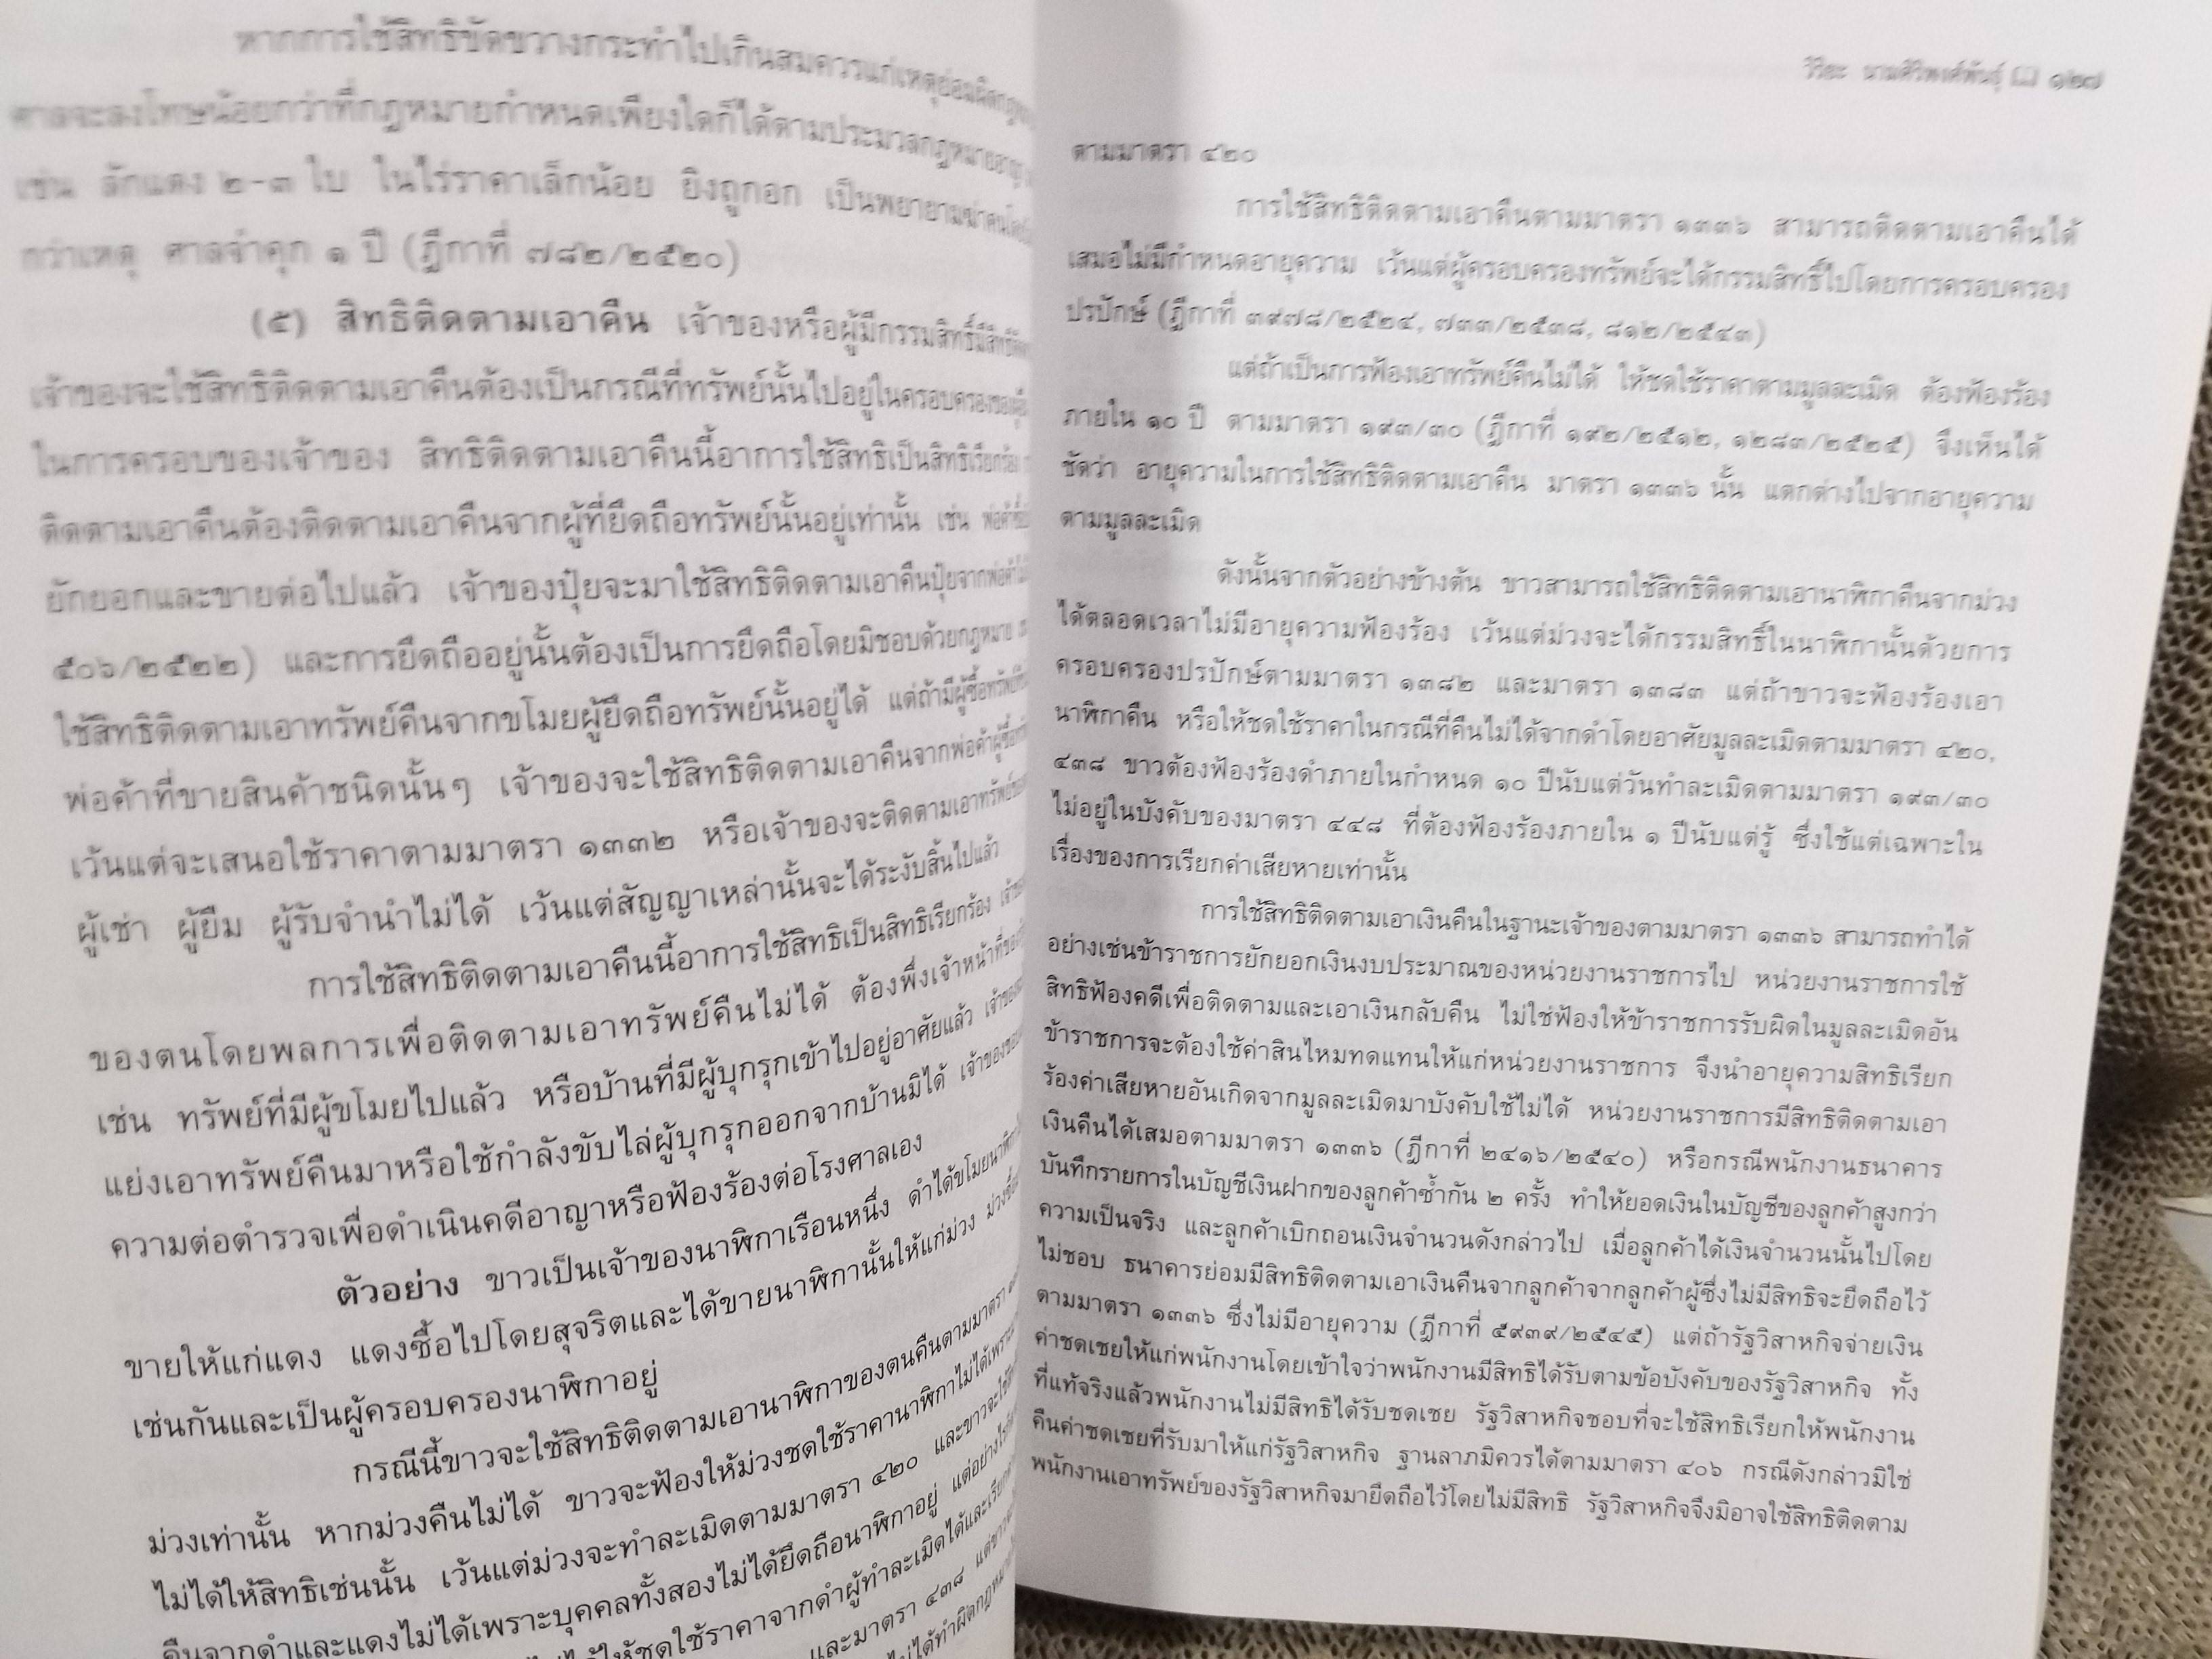 หากการใช้สิทธิขัดขวางกระทำไปเกินสมควรแก่เหตุย่อมผิดกฎหมาย
ศาลจะลงโทษน้อยกว่าที่กฎหมายกำหนดเพียงใดก็ได้ตามประมวลกฎหมายอาญา
เช่น ลักแตง ๒-๓ ใบ ในไร่ราคาเล็กน้อย ยิงถูกอก เป็นพยายามฆ่าคนโดย
กว่าเหตุ ศาลจำคุก ๑ ปี (ฎีกาที่ ๗๘๒/๒๕๒๐)
(๕) สิทธิติดตามเอาคืน เจ้าของหรือผู้มีกรรมสิทธิ์มีสิทธิ
เจ้าของจะใช้สิทธิติดตามเอาคืนต้องเป็นกรณีที่ทรัพย์นั้นไปอยู่ในครอบครองของ
ในการครอบของเจ้าของ สิทธิติดตามเอาคืนนี้อาการใช้สิทธิเป็นสิทธิเรียกร้อง
ติดตามเอาคืนต้องติดตามเอาคืนจากผู้ที่ยึดถือทรัพย์นั้นอยู่เท่านั้น เช่น พ่อค้า
ยักยอกและขายต่อไปแล้ว เจ้าของปุ๋ยจะมาใช้สิทธิติดตามเอาคืนปุ๋ยจากพ่อค้า
๕๐๖/๒๕๒๒) และการยึดถืออยู่นั้นต้องเป็นการยึดถือโดยมิชอบด้วยกฎหมาย
ใช้สิทธิติดตามเอาทรัพย์คืนจากขโมยผู้ยึดถือทรัพย์นั้นอยู่ได้ แต่ถ้ามีผู้ซื้อทรัพย์
พ่อค้าที่ขายสินค้าชนิดนั้นๆ เจ้าของจะใช้สิทธิติดตามเอาคืนจากพ่อค้าผู้ซื้อ
เว้นแต่จะเสนอใช้ราคาตามมาตรา ๑๓๓๒ หรือเจ้าของจะติดตามเอาทรัพย์
ผู้เช่า ผู้ยืม ผู้รับจำนำไม่ได้ เว้นแต่สัญญาเหล่านั้นจะได้ระงับสิ้นไปแล้ว
การใช้สิทธิติดตามเอาคืนนี้อาการใช้สิทธิเป็นสิทธิเรียกร้อง
ของตนโดยพลการเพื่อติดตามเอาทรัพย์คืนไม่ได้ ต้องพึ่งเจ้าหน้าที่ของ
เช่น ทรัพย์ที่มีผู้ขโมยไปแล้ว หรือบ้านที่มีผู้บุกรุกเข้าไปอยู่อาศัยแล้ว
แย่งเอาทรัพย์คืนมาหรือใช้กำลังขับไล่ผู้บุกรุกออกจากบ้านมิได้
ความต่อตำรวจเพื่อดำเนินคดีอาญาหรือฟ้องร้องต่อโรงศาลเอง
ตัวอย่าง ขาวเป็นเจ้าของนาฬิกาเรือนหนึ่ง ดำได้ขโมยนาฬิกา
ขายให้แก่แดง แดงซื้อไปโดยสุจริตและได้ขายนาฬิกานั้นให้แก่ม่วง
เช่นกันและเป็นผู้ครอบครองนาฬิกาอยู่
กรณีนี้ขาวจะใช้สิทธิติดตามเอานาฬิกาของตนคืนตามมาตรา
ม่วงเท่านั้น หากม่วงคืนไม่ได้ ขาวจะฟ้องให้ม่วงชดใช้ราคานาฬิกาไม่ได้เพราะ
ไม่ได้ให้สิทธิเช่นนั้น เว้นแต่ม่วงจะทำละเมิดตามมาตรา ๔๒๐ และขาวจะใช้
คืนจากดำและแดงไม่ได้เพราะบุคคลทั้งสองไม่ได้ยึดถือนาฬิกาอยู่ แต่อย่างไร
ให้ชดใช้ราคาจากดำผู้ทำละเมิดได้และเรียก
และมาตรา ๔๓๘
ไม่ได้ทำผิดกฎหมาย
วิริยะ นามศิริพงศ์พันธุ์ ๑๒๗
ตามมาตรา ๔๒๐
การใช้สิทธิติดตามเอาคืนตามมาตรา ๑๓๓๖ สามารถติดตามเอาคืนได้
เสมอไม่มีกำหนดอายุความ เว้นแต่ผู้ครอบครองทรัพย์จะได้กรรมสิทธิ์ไปโดยการครอบครอง
ปรปักษ์ (ฎีกาที่ ๓๙๗๘/๒๕๒๔, ๗๓๓/๒๕๓๘, ๘๑๒/๒๕๔๓)
แต่ถ้าเป็นการฟ้องเอาทรัพย์คืนไม่ได้ ให้ชดใช้ราคาตามมูลละเมิด ต้องฟ้องร้อง
ภายใน ๑๐ ปี ตามมาตรา ๑๙๓/๓๐ (ฎีกาที่ ๑๙๒/๒๕๑๒, ๑๒๘๓/๒๕๒๕) จึงเห็นได้
ชัดว่า อายุความในการใช้สิทธิติดตามเอาคืน มาตรา ๑๓๓๖ นั้น แตกต่างไปจากอายุความ
ตามมูลละเมิด
ดังนั้นจากตัวอย่างข้างต้น ขาวสามารถใช้สิทธิติดตามเอานาฬิกาคืนจากม่วง
ได้ตลอดเวลาไม่มีอายุความฟ้องร้อง เว้นแต่ม่วงจะได้กรรมสิทธิ์ในนาฬิกานั้นด้วยการ
ครอบครองปรปักษ์ตามมาตรา ๑๓๘๒ และมาตรา ๑๓๘๓ แต่ถ้าขาวจะฟ้องร้องเอา
นาฬิกาคืน หรือให้ชดใช้ราคาในกรณีที่คืนไม่ได้จากดำโดยอาศัยมูลละเมิดตามมาตรา ๔๒๐,
๔๓๘ ขาวต้องฟ้องร้องดำภายในกำหนด ๑๐ ปีนับแต่วันทำละเมิดตามมาตรา ๑๙๓/๓๐
ไม่อยู่ในบังคับของมาตรา ๔๔๘ ที่ต้องฟ้องร้องภายใน ๑ ปีนับแต่รู้ ซึ่งใช้แต่เฉพาะใน
เรื่องของการเรียกค่าเสียหายเท่านั้น
การใช้สิทธิติดตามเอาเงินคืนในฐานะเจ้าของตามมาตรา ๑๓๓๖ สามารถทำได้
อย่างเช่นข้าราชการยักยอกเงินงบประมาณของหน่วยงานราชการไป หน่วยงานราชการใช้
สิทธิฟ้องคดีเพื่อติดตามและเอาเงินกลับคืน ไม่ใช่ฟ้องให้ข้าราชการรับผิดในมูลละเมิดอัน
ข้าราชการจะต้องใช้ค่าสินไหมทดแทนให้แก่หน่วยงานราชการ จึงนำอายุความสิทธิเรียก
ร้องค่าเสียหายอันเกิดจากมูลละเมิดมาบังคับใช้ไม่ได้ หน่วยงานราชการมีสิทธิติดตามเอา
เงินคืนได้เสมอตามมาตรา ๑๓๓๖ (ฎีกาที่ ๒๔๑๖/๒๕๔๐) หรือกรณีพนักงานธนาคาร
บันทึกรายการในบัญชีเงินฝากของลูกค้าซ้ำกัน ๒ ครั้ง ทำให้ยอดเงินในบัญชีของลูกค้าสูงกว่า
ความเป็นจริง และลูกค้าเบิกถอนเงินจำนวนดังกล่าวไป เมื่อลูกค้าได้เงินจำนวนนั้นไปโดย
ไม่ชอบ ธนาคารย่อมมีสิทธิติดตามเอาเงินคืนจากลูกค้าจากลูกค้าผู้ซึ่งไม่มีสิทธิจะยึดถือไว้
ตามมาตรา ๑๓๓๖ ซึ่งไม่มีอายุความ (ฎีกาที่ ๕๙๓๙/๒๕๔๕) แต่ถ้ารัฐวิสาหกิจจ่ายเงิน
ค่าชดเชยให้แก่พนักงานโดยเข้าใจว่าพนักงานมีสิทธิได้รับตามข้อบังคับของรัฐวิสาหกิจ ทั้ง
ที่แท้จริงแล้วพนักงานไม่มีสิทธิได้รับชดเชย รัฐวิสาหกิจชอบที่จะใช้สิทธิเรียกให้พนักงาน
คืนค่าชดเชยที่รับมาให้แก่รัฐวิสาหกิจ ฐานลาภมิควรได้ตามมาตรา ๔๐๖ กรณีดังกล่าวมิใช่
พนักงานเอาทรัพย์ของรัฐวิสาหกิจมายึดถือไว้โดยไม่มีสิทธิ รัฐวิสาหกิจจึงมิอาจใช้สิทธิติดตาม